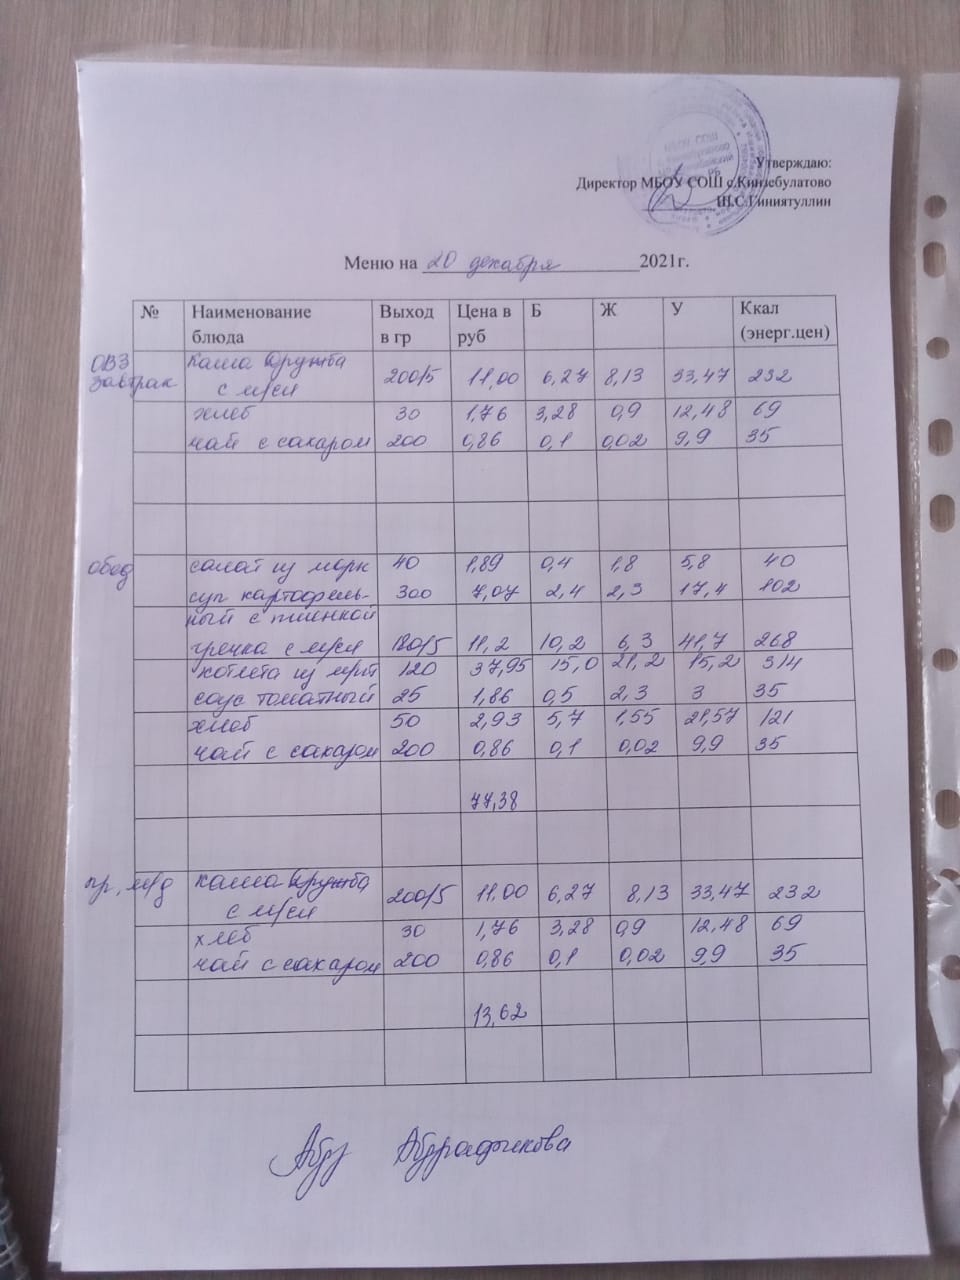 МБОУ СОШ
РБ
Утверждаю:
Директор МБОУ СОШ с.Кинзебулатово
Ш.С.Гиниятуллин
Меню на 20 декабря 2021г.
№ Наименование блюда Выход в гр Цена в руб Б Ж У Ккал (энерг.цен)
ОВЗ завтрак Каша Дружба
с м/сл 200/5 11,00 6,27 8,13 33,47 232
хлеб 30 1,76 3,28 0,9 12,48 69
чай с сахаром 200 0,86 0,1 0,02 9,9 35
обед салат из морк 40 1,89 0,4 1,8 5,8 40
суп картофель- 300 7,07 2,4 2,3 17,4 102
ный с пшенкой
гречка с м/сл 180/5 11,2 10,2 6,3 41,7 268
котлета из м/пт 120 37,95 15,0 21,2 15,2 314
соус томатный 25 1,86 0,5 2,3 3 35
хлеб 50 2,93 5,7 1,55 21,57 121
чай с сахаром 200 0,86 0,1 0,02 9,9 35
77,38
пр, м/д каша Дружба
с м/сл 200/5 11,00 6,27 8,13 33,47 232
хлеб 30 1,76 3,28 0,9 12,48 69
чай с сахаром 200 0,86 0,1 0,02 9,9 35
13,62
Абдрафикова